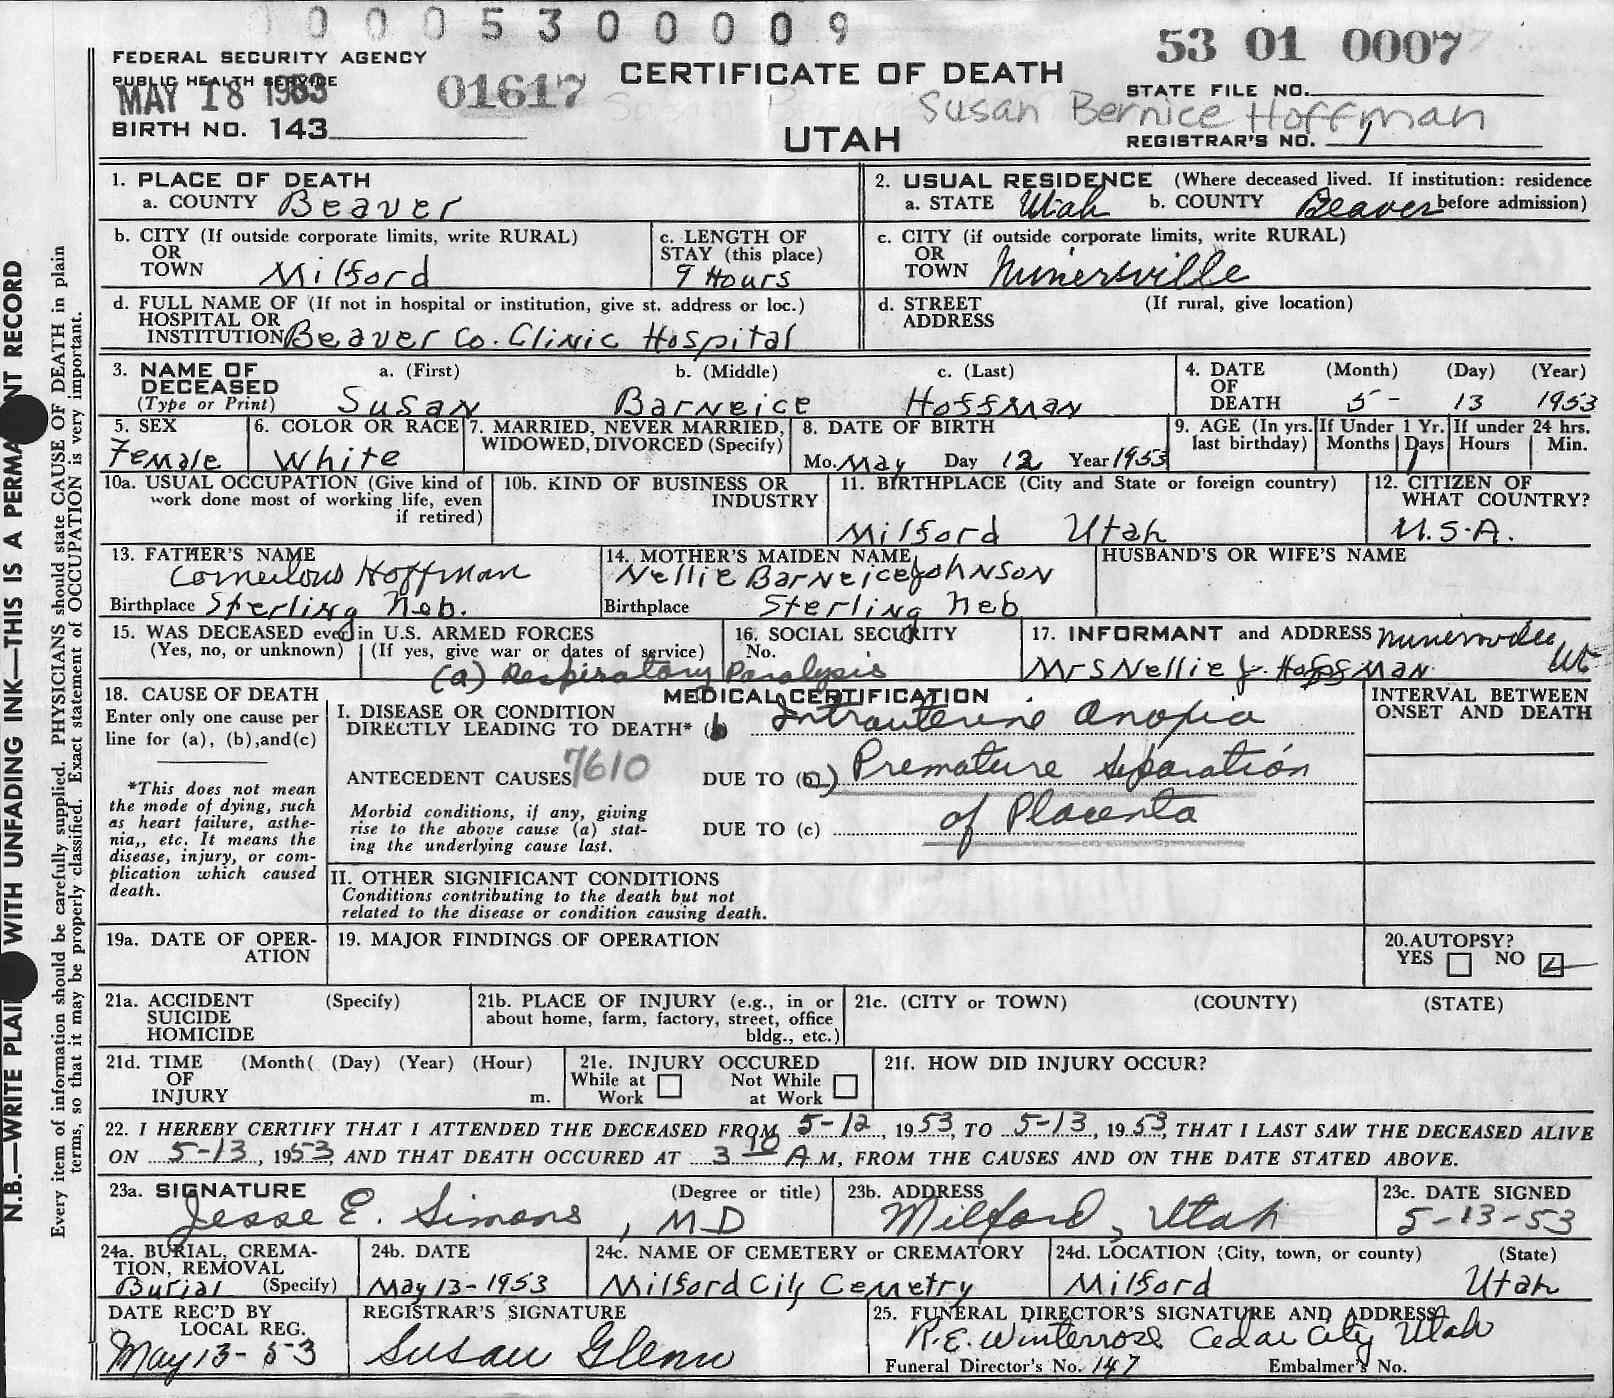 0 0 0 5 3 0 0 0 0 9
53 01 0007
FEDERAL SECURITY AGENCY
PUBLIC HEALTH SERVICE
MAY 18 1953
01617
CERTIFICATE OF DEATH
STATE FILE NO.
Susan Bernice Hoffman
BIRTH NO. 143
UTAH
REGISTRAR'S NO. 1
1. PLACE OF DEATH
a. COUNTY Beaver
2. USUAL RESIDENCE (Where deceased lived. If institution: residence before admission)
a. STATE Utah b. COUNTY Beaver
b. CITY (If outside corporate limits, write RURAL)
OR
TOWN Milford
c. LENGTH OF
STAY (this place)
9 Hours
c. CITY (if outside corporate limits, write RURAL)
OR
TOWN Minersville
d. FULL NAME OF (If not in hospital or institution, give st. address or loc.)
HOSPITAL OR
INSTITUTION Beaver Co. Clinic Hospital
d. STREET (If rural, give location)
ADDRESS
3. NAME OF a. (First) b. (Middle) c. (Last)
DECEASED
(Type or Print) Susan Barneice Hoffman
4. DATE (Month) (Day) (Year)
OF
DEATH 5- 13 1953
5. SEX
Female
6. COLOR OR RACE
White
7. MARRIED, NEVER MARRIED,
WIDOWED, DIVORCED (Specify)
8. DATE OF BIRTH
Mo. May Day 12 Year 1953
9. AGE (In yrs. last birthday)
If Under 1 Yr. If under 24 hrs.
Months Days Hours Min.
1
10a. USUAL OCCUPATION (Give kind of
work done most of working life, even
if retired)
10b. KIND OF BUSINESS OR
INDUSTRY
11. BIRTHPLACE (City and State or foreign country)
Milford Utah
12. CITIZEN OF
WHAT COUNTRY?
U.S.A.
13. FATHER'S NAME
Corneilous Hoffman
Birthplace Sterling Neb.
14. MOTHER'S MAIDEN NAME
Nellie Barneice Johnson
Birthplace Sterling Neb
HUSBAND'S OR WIFE'S NAME
15. WAS DECEASED ever in U.S. ARMED FORCES
(Yes, no, or unknown) (If yes, give war or dates of service)
16. SOCIAL SECURITY
No.
17. INFORMANT and ADDRESS Minersville
Ut
Mrs Nellie J. Hoffman
(a) Respiratory Paralysis
18. CAUSE OF DEATH
Enter only one cause per
line for (a), (b), and (c)
MEDICAL CERTIFICATION
INTERVAL BETWEEN
ONSET AND DEATH
I. DISEASE OR CONDITION
DIRECTLY LEADING TO DEATH* (b Intrauterine Anoxia
ANTECEDENT CAUSES 7610 DUE TO (c) Premature Separation
*This does not mean
the mode of dying, such
as heart failure, asthe-
nia,, etc. It means the
disease, injury, or com-
plication which caused
death.
Morbid conditions, if any, giving
rise to the above cause (a) stat-
ing the underlying cause last.
DUE TO (c) of Placenta
II. OTHER SIGNIFICANT CONDITIONS
Conditions contributing to the death but not
related to the disease or condition causing death.
19a. DATE OF OPER-
ATION
19. MAJOR FINDINGS OF OPERATION
20. AUTOPSY?
YES NO
21a. ACCIDENT (Specify)
SUICIDE
HOMICIDE
21b. PLACE OF INJURY (e.g., in or
about home, farm, factory, street, office
bldg., etc.)
21c. (CITY or TOWN) (COUNTY) (STATE)
21d. TIME (Month( (Day) (Year) (Hour)
OF
INJURY m.
21e. INJURY OCCURED
While at Not While
Work at Work
21f. HOW DID INJURY OCCUR?
22. I HEREBY CERTIFY THAT I ATTENDED THE DECEASED FROM 5-12, 1953, TO 5-13, 1953, THAT I LAST SAW THE DECEASED ALIVE
ON 5-13, 1953, AND THAT DEATH OCCURED AT 3 10 A M, FROM THE CAUSES AND ON THE DATE STATED ABOVE.
23a. SIGNATURE (Degree or title)
Jesse E. Simons, MD
23b. ADDRESS
Milford, Utah
23c. DATE SIGNED
5-13-53
24a. BURIAL, CREMA-
TION, REMOVAL
Burial (Specify)
24b. DATE
May 13-1953
24c. NAME OF CEMETERY or CREMATORY
Milford City Cemetry
24d. LOCATION (City, town, or county) (State)
Milford Utah
DATE REC'D BY
LOCAL REG.
May 13-53
REGISTRAR'S SIGNATURE
Susan Glenn
25. FUNERAL DIRECTOR'S SIGNATURE AND ADDRESS
R.E. Winterrose Cedar City Utah
Funeral Director's No. 147 Embalmer's No.
N.B.—WRITE PLAI WITH UNFADING INK—THIS IS A PERMA NT RECORD
Every item of information should be carefully supplied. PHYSICIANS should state CAUSE OF DEATH in plain
terms, so that it may be properly classified. Exact statement of OCCUPATION is very important.